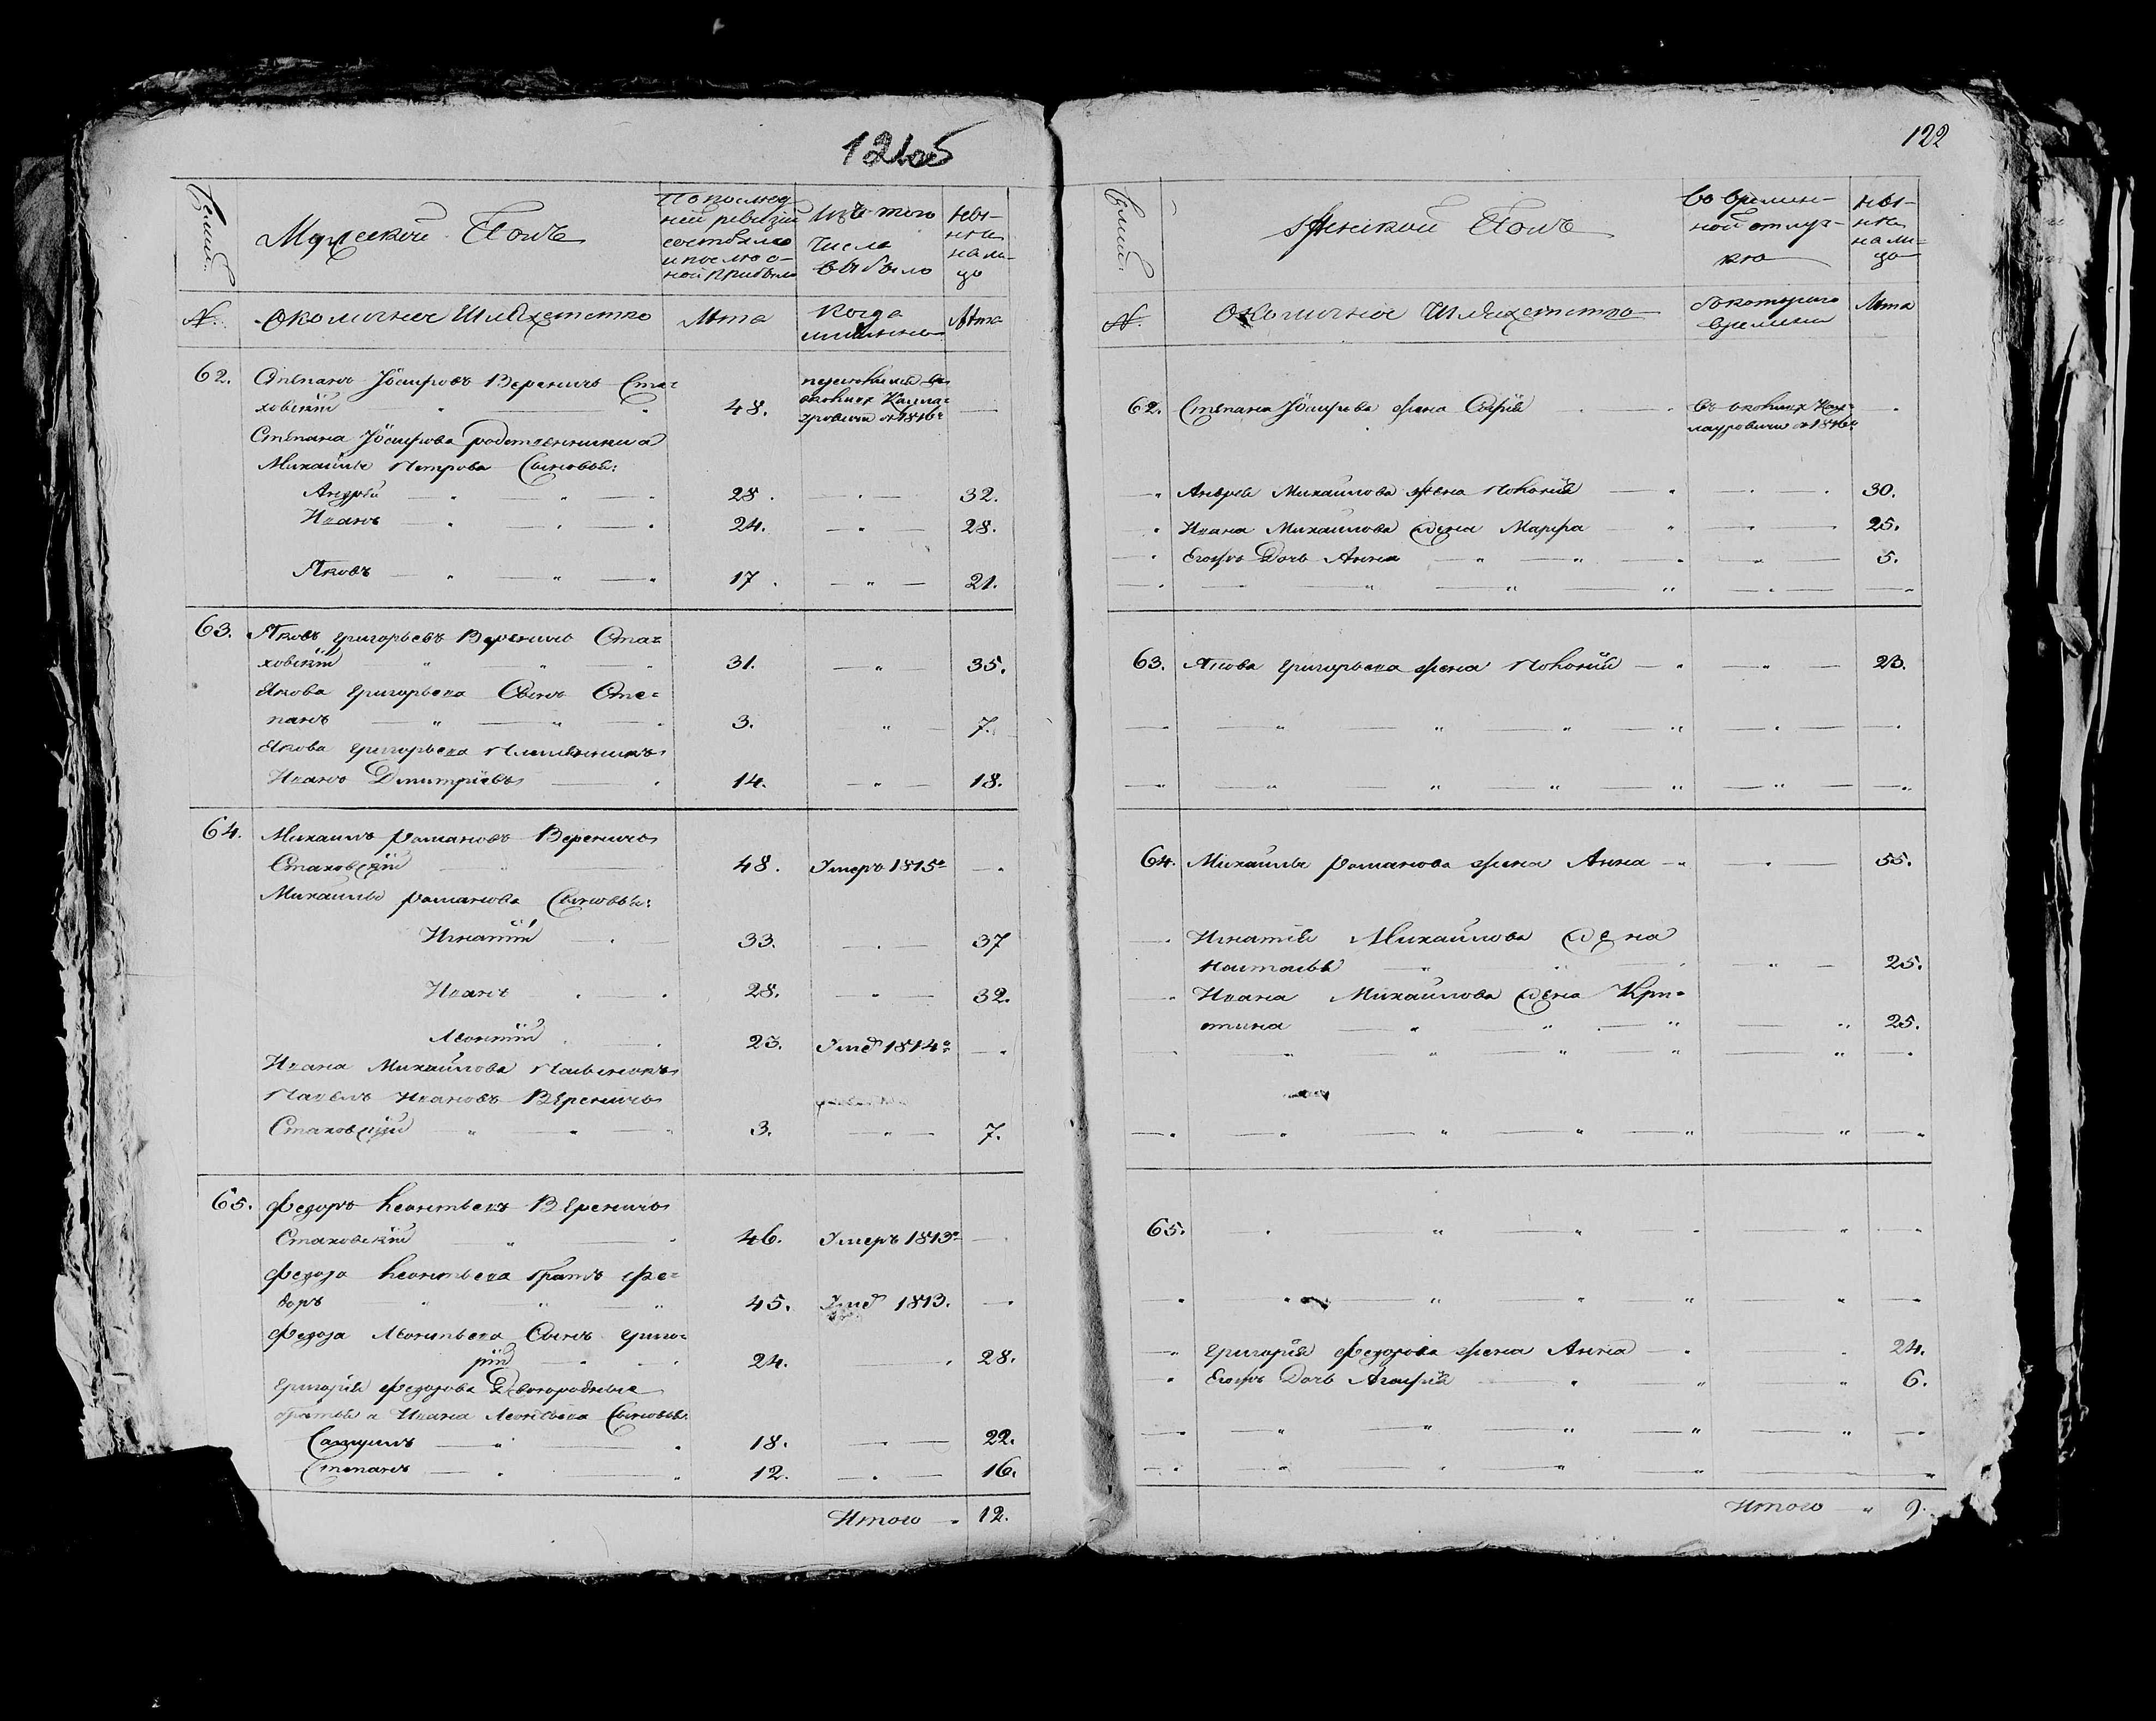 121об
122
Семьи.
Мужескои Полъ
По послед-
ней ревизіи
состояло
и после о-
ной прибыло
Изъ того
числа
выбыло
Ны-
нѣ
на ли-
цо
№.
Околичное Шляхетство
Лѣта
Когда
именно
Лѣта
62. Степанъ Іосифовъ Вереничъ Ста-
ховскій 48. —
околицу
Степана Іосифова родственника
Михайлы Петрова Сыновья:
Андрей 28. 32.
Иванъ 24. 28.
Яковъ 17. 21.
63. Яковъ Григорьевъ Вереничъ Ста-
ховскій 31. 35.
Якова Григорьева Сынъ Сте-
панъ 3. 7.
Якова Григорьева Племянникъ
Иванъ Дмитріевъ 14. 18.
64. Михаилъ Романовъ Вереничъ
Стаховскій 48. Умеръ 1815 —
Михайлы Романова Сыновья:
Игнатій 33. 37
Иванъ 28. 32.
Леонтій 23. Умер 1814 —
Ивана Михайлова
Павелъ Ивановъ Вереничъ
Стаховскій 3. 7.
65. Федоръ Леонтьевъ Вереничъ
Стаховскій 46. Умеръ 1813 —
Федора Леонтьева братъ Фе-
доръ 45. Умер 1813. —
Федора Леонтьева Сынъ Григо-
рій 24. 28.
Григорія Федорова Двоюродные
братья а Ивана Леонтьева Сыновья:
Самуилъ 18. 22.
Степанъ 12. 16.
Итого 12.
Семьи.
Женскои Полъ
Во времен-
ной отлуч-
кѣ
Ны-
нѣ
на ли-
цо
№.
Околичное Шляхетство
Съ котораго
времени
Лѣта
62. Степана Іосифова жена Софія
Андрея Михайлова жена 30.
Ивана Михайлова жена Марфа 25.
Егожъ Дочь Анна 5.
63. Якова Григорьева жена 23.
64. Михайлы Романова жена Анна 55.
Игнатія Михайлова жена
Наталья 25.
Ивана Михайлова жена Кри-
стина 25.
65.
Григорія Федорова жена Анна 24.
Егожъ Дочь Агафія 6.
Итого 9.